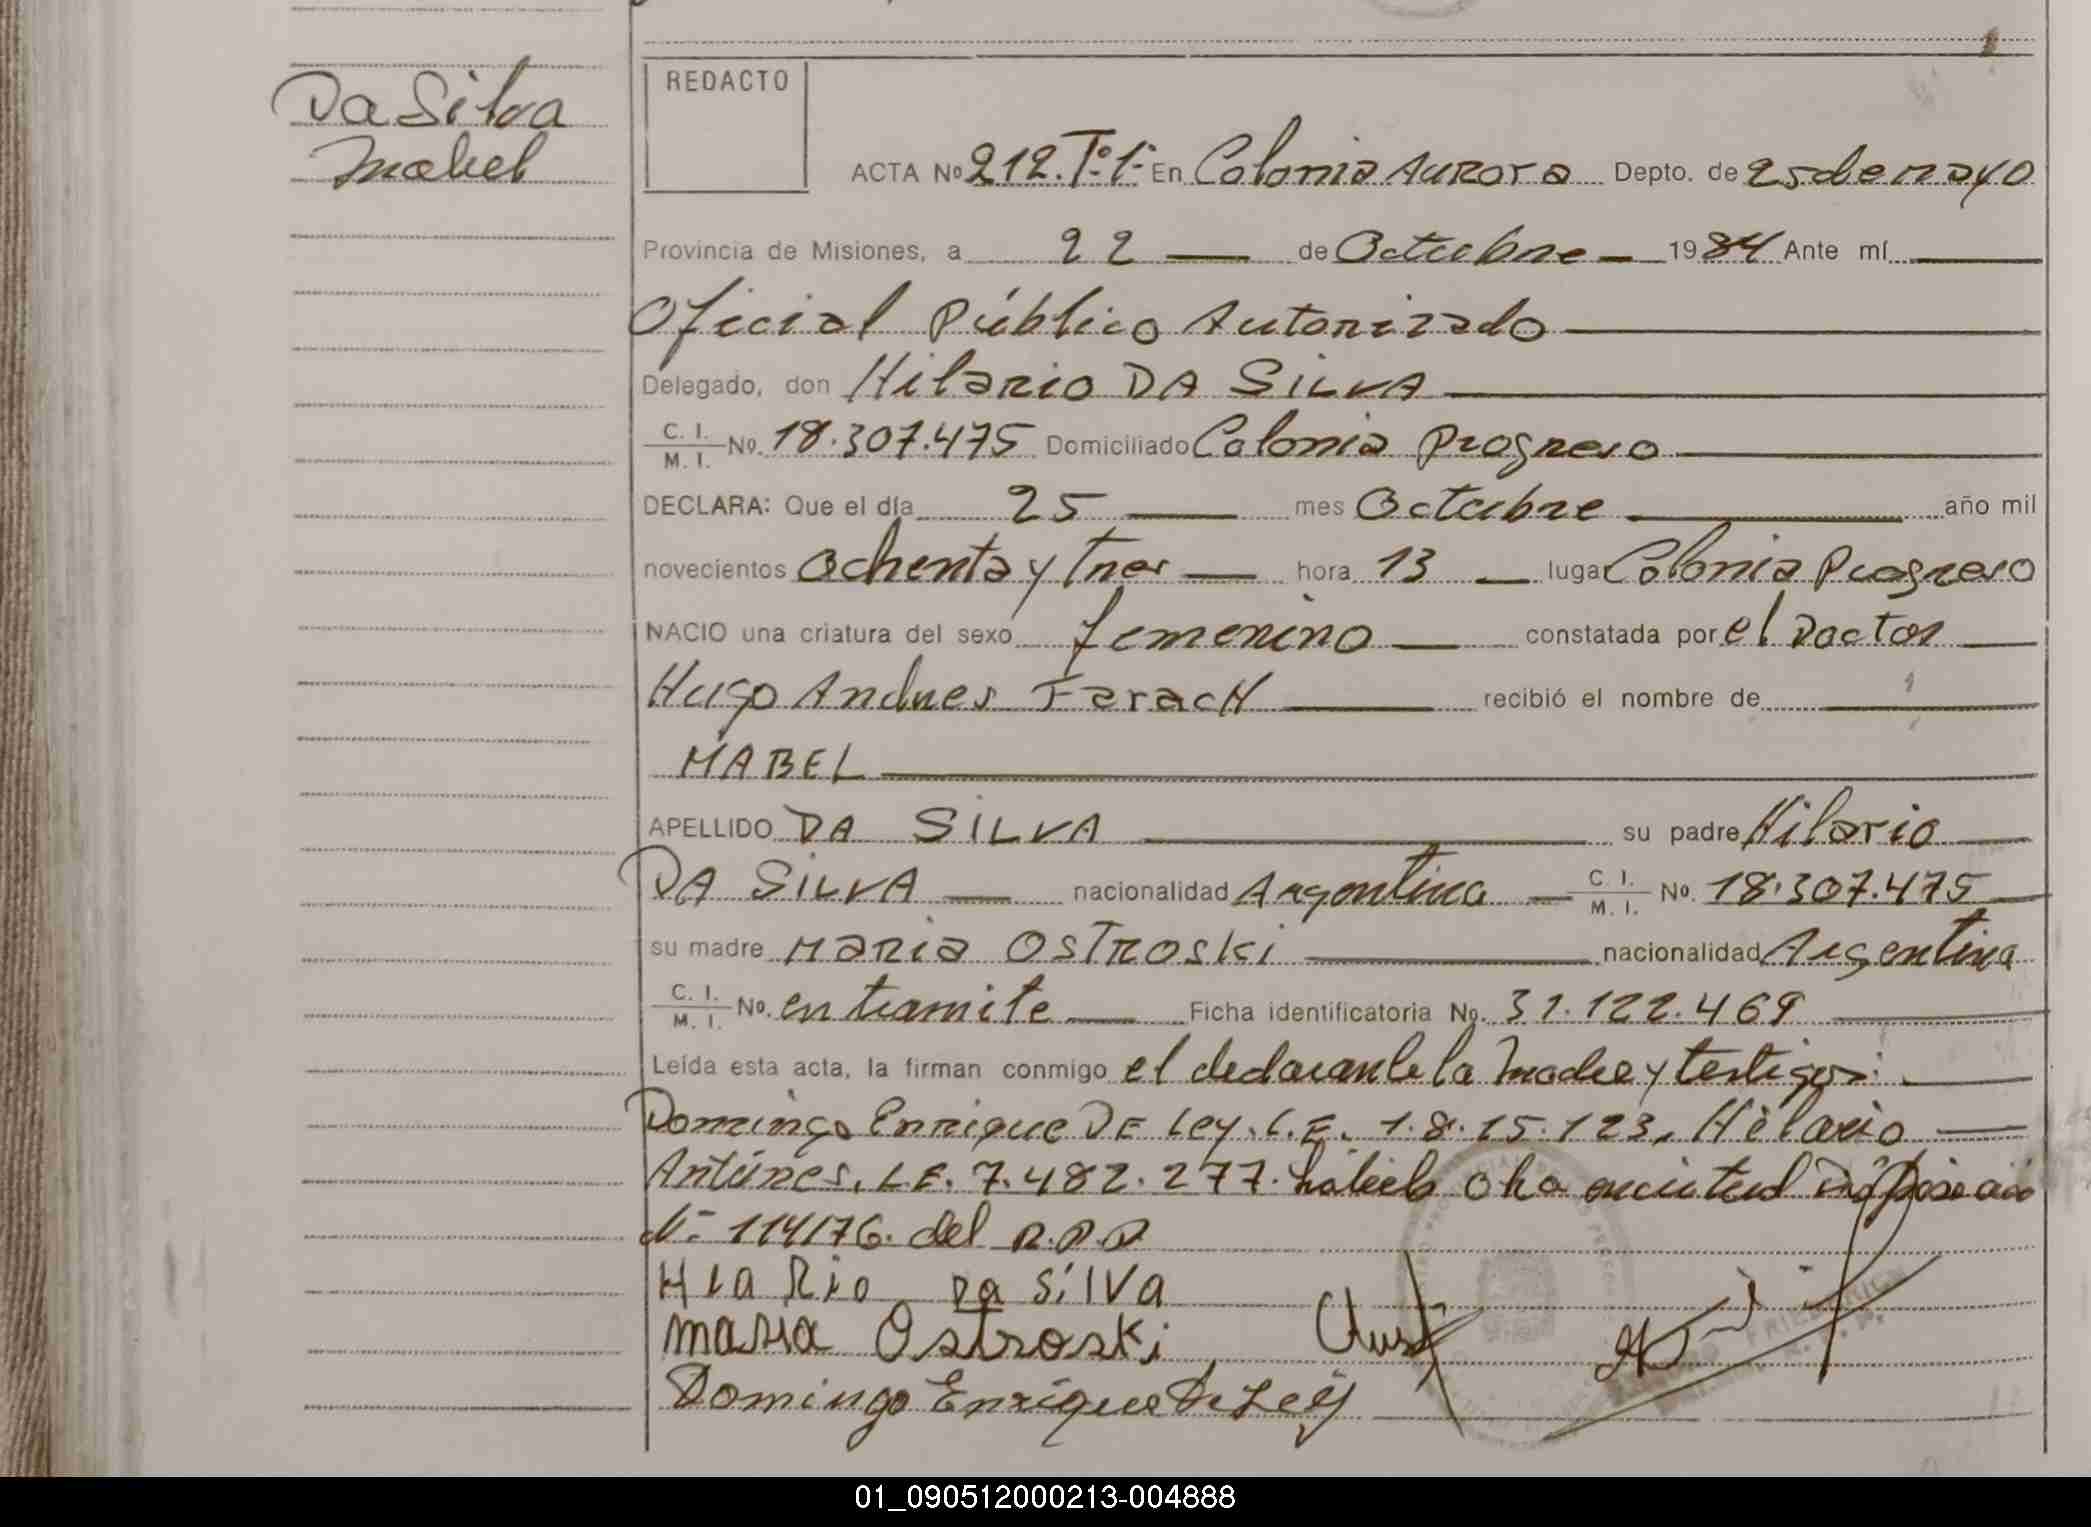 Da Silva
Mabel
REDACTO
ACTA Nº 212. Tº 1º En Colonia Aurora Depto. de 25 de mayo
Provincia de Misiones, a 22 de Octubre 1984 Ante mí
Oficial Público Autorizado
Delegado, don Hilario DA SILVA
C. I. / M. I. Nº. 18.307.475 Domiciliado Colonia Progreso
DECLARA: Que el día 25 mes Octubre año mil
novecientos Ochenta y tres hora 13 lugar Colonia Progreso
NACIO una criatura del sexo femenino constatada por el Doctor
Hugo Andres Farach recibió el nombre de
MABEL
APELLIDO DA SILVA su padre Hilario
DA SILVA nacionalidad Argentina C. I. / M. I. Nº. 18.307.475
su madre Maria Ostroski nacionalidad Argentina
C. I. / M. I. Nº. en tramite Ficha identificatoria Nº. 31.122.469
Leída esta acta, la firman conmigo el declarante la madre y testigos:
Domingo Enrique DE Ley. L.E. 1.8.15.123, Hilario
Antúnes. L.E. 7.482.277.
Nº 114/76. del R.P.P
HlaRio Da SilVa
maria Ostroski
Domingo Enrique De Ley
01_090512000213-004888